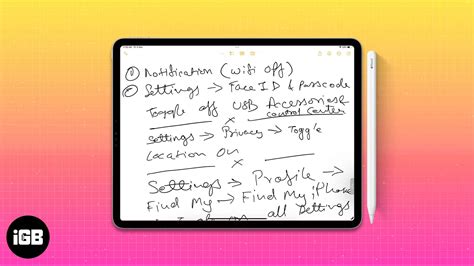 ① Notification (wifi off)
② Settings → Face ID & Passcode
Toggle off USB Accessories &
control center
×
settings → Privacy → Toggle
Location On
×
Settings → Profile →
Find My → Find My iPhone
all Settings
iGB